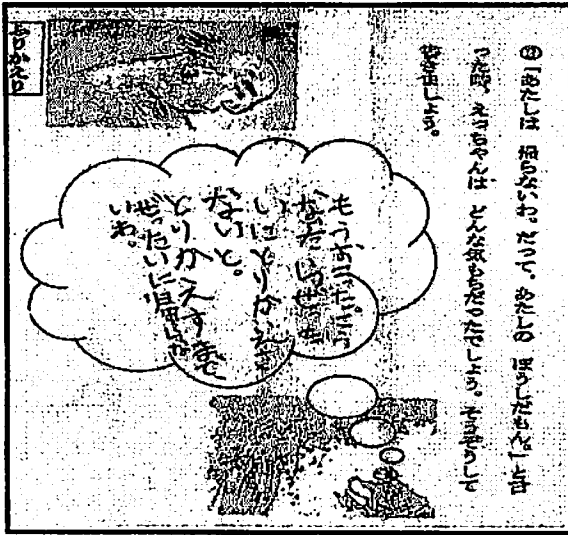 「あたしは 帰らないわ。だって、あたしの ぼうしだもん。」と言
った時、えっちゃんは どんな気もちだったでしょう。そうぞうして
書きましょう。
もうおこった。
ぜった
いにとりかえさ
ないと。
とりかえすまで
ぜったいに帰らな
いわ。
ふりかえり